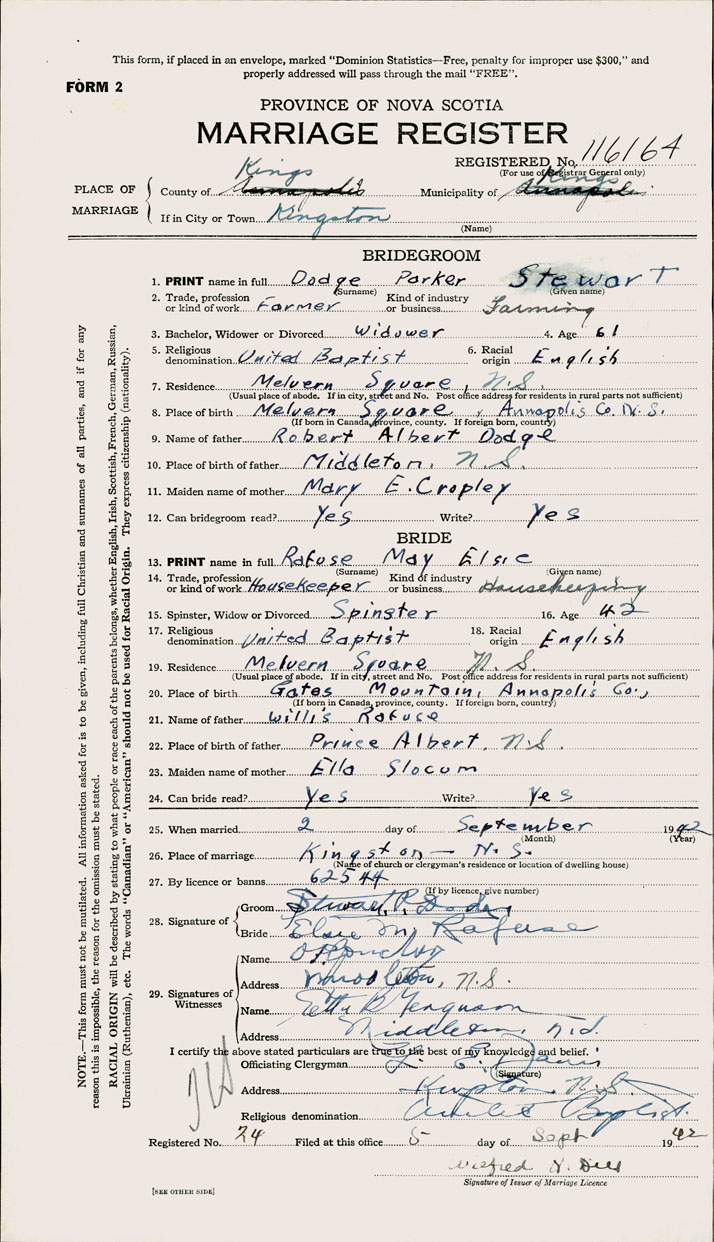 This form, if placed in an envelope, marked "Dominion Statistics—Free, penalty for improper use $300," and
properly addressed will pass through the mail "FREE".
FORM 2
PROVINCE OF NOVA SCOTIA
MARRIAGE REGISTER
REGISTERED No. 116164
(For use of Registrar General only)
PLACE OF MARRIAGE
County of Annapolis Kings Municipality of Annapolis Kings
If in City or Town Kingston
(Name)
BRIDEGROOM
1. PRINT name in full Dodge Parker Stewart
(Surname) (Given name)
2. Trade, profession or kind of work Farmer Kind of industry or business Farming
3. Bachelor, Widower or Divorced Widower 4. Age 61
5. Religious denomination United Baptist 6. Racial origin English
7. Residence Melvern Square, N.S.
(Usual place of abode. If in city, street and No. Post office address for residents in rural parts not sufficient)
8. Place of birth Melvern Square, Annapolis Co. N.S.
(If born in Canada, province, county. If foreign born, country)
9. Name of father Robert Albert Dodge
10. Place of birth of father Middleton, N.S.
11. Maiden name of mother Mary E. Cropley
12. Can bridegroom read? Yes Write? Yes
BRIDE
13. PRINT name in full Rafuse May Elsie
(Surname) (Given name)
14. Trade, profession or kind of work Housekeeper Kind of industry or business Housekeeping
15. Spinster, Widow or Divorced Spinster 16. Age 42
17. Religious denomination United Baptist 18. Racial origin English
19. Residence Melvern Square N.S.
(Usual place of abode. If in city, street and No. Post office address for residents in rural parts not sufficient)
20. Place of birth Gates Mountain, Annapolis Co.,
(If born in Canada, province, county. If foreign born, country)
21. Name of father Willis Rafuse
22. Place of birth of father Prince Albert, N.S.
23. Maiden name of mother Ella Slocum
24. Can bride read? Yes Write? Yes
25. When married 2 day of September 1942
(Month) (Year)
26. Place of marriage Kingston — N.S.
(Name of church or clergyman's residence or location of dwelling house)
27. By licence or banns 62544
(If by licence, give number)
28. Signature of
Groom Stewart P. Dodge
Bride Elsie M. Rafuse
29. Signatures of Witnesses
Name
Address Middleton, N.S.
Name Etta B Ferguson
Address Middleton, N.S.
I certify the above stated particulars are true to the best of my knowledge and belief.
Officiating Clergyman
(Signature)
Address Kingston, N.S.
Religious denomination United Baptist
Registered No. 24 Filed at this office 5 day of Sept 1942
Wilfred
Signature of Issuer of Marriage Licence
[SEE OTHER SIDE]
NOTE.—This form must not be mutilated. All information asked for is to be given, including full Christian and surnames of all parties, and if for any
reason this is impossible, the reason for the omission must be stated.
RACIAL ORIGIN will be described by stating to what people or race each of the parents belongs, whether English, Irish, Scottish, French, German, Russian,
Ukrainian (Ruthenian), etc. The words "Canadian" or "American" should not be used for Racial Origin. They express citizenship (nationality).